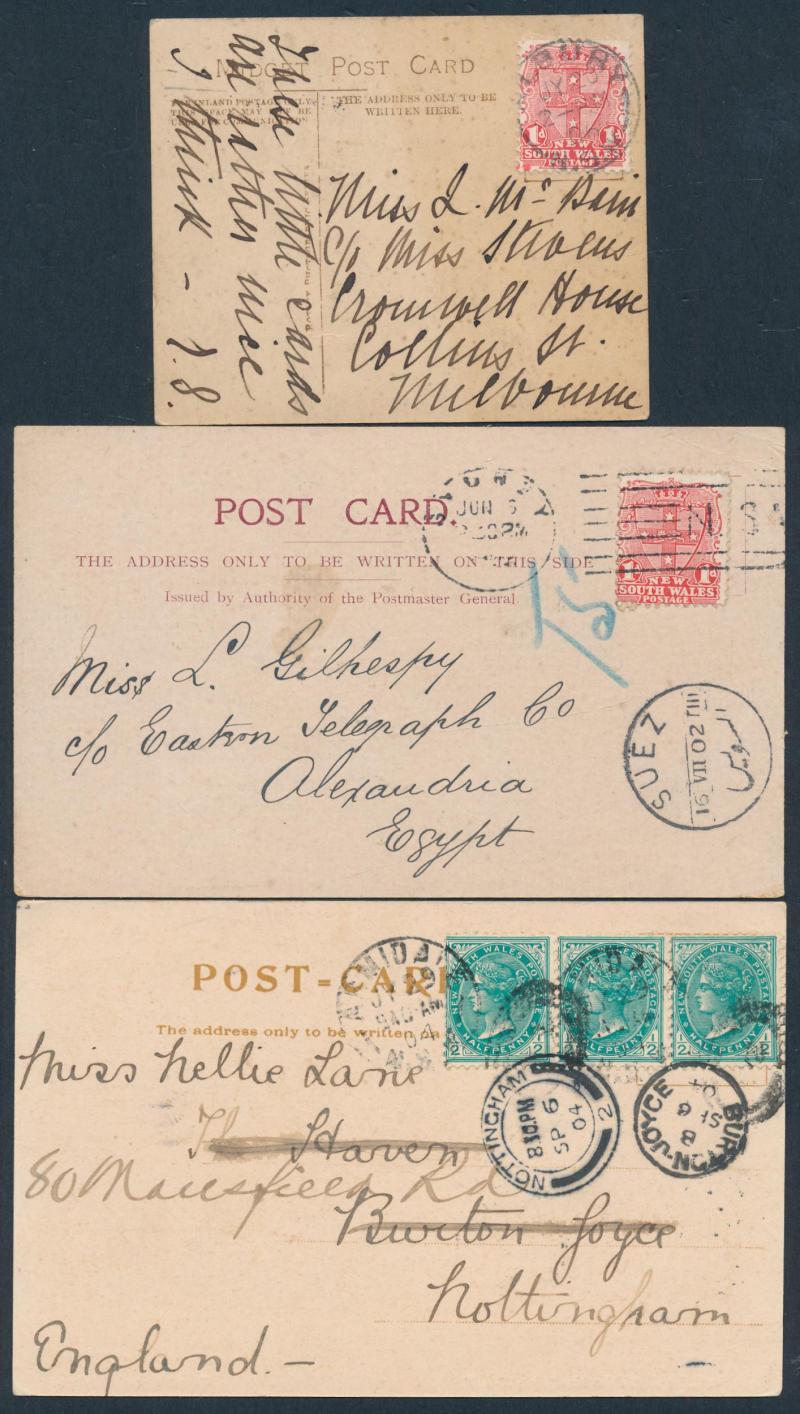 MIDGET POST CARD
THE ADDRESS ONLY TO BE
WRITTEN HERE.
1d 1d
NEW
SOUTH WALES
POSTAGE
These little cards
are rather nice
I think —
J.S.
Miss L. McBain
c/o Miss Stevens
Cromwell House
Collins St.
Melbourne
POST CARD.
THE ADDRESS ONLY TO BE WRITTEN ON THIS SIDE
Issued by Authority of the Postmaster General.
SYDNEY
JUN 6
N S
1d 1d
NEW
SOUTH WALES
POSTAGE
T
Miss L. Gilhespy
c/o Eastern Telegraph Co
Alexandria
Egypt
SUEZ
16 VII 02
السويس
POST-CARD
The address only to be written
ARMIDALE
04
NEW SOUTH WALES POSTAGE
HALFPENNY
NEW SOUTH WALES POSTAGE
HALFPENNY
NEW SOUTH WALES POSTAGE
HALFPENNY
NOTTINGHAM 2
8 PM
SP 6
04
BURTON-JOYCE
SP 6
04
Miss Nellie Lane
The Haven
80 Mansfield Rd
Burton Joyce
Nottingham
England. —